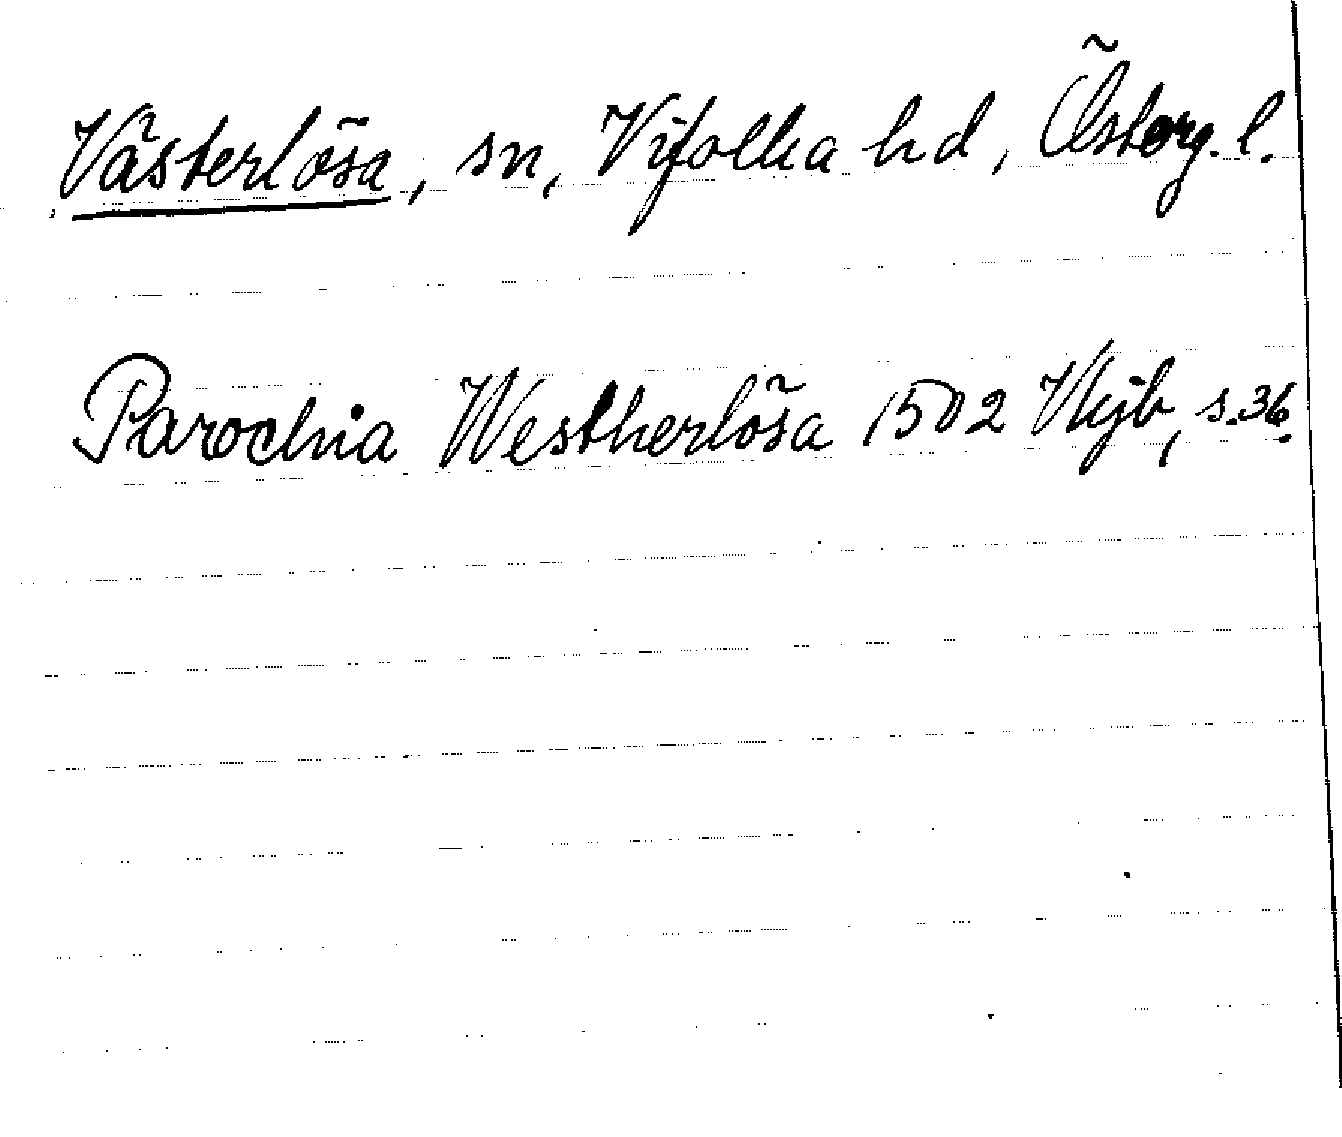 Västerlösa, sn, Vifolka hd, Österg. l.
Parochia Westherlösa 1502 Vkjb, s. 36.